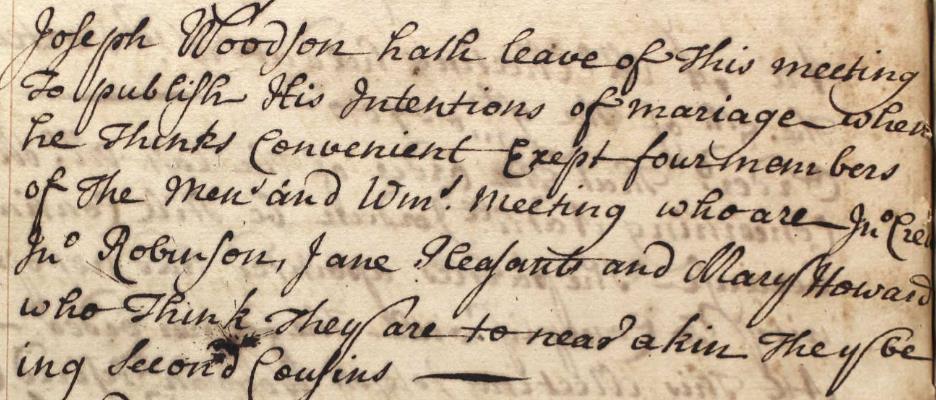 Joseph Woodson hath leave of This meeting
To publish His Intentions of mariage when
he Thinks Convenient Exept four members
of The Mens and Wms. Meeting who are Jno Crew
Jno Robinson, Jane Pleasants and Mary Howard
who Think They are to near akin They be
ing Second Cousins